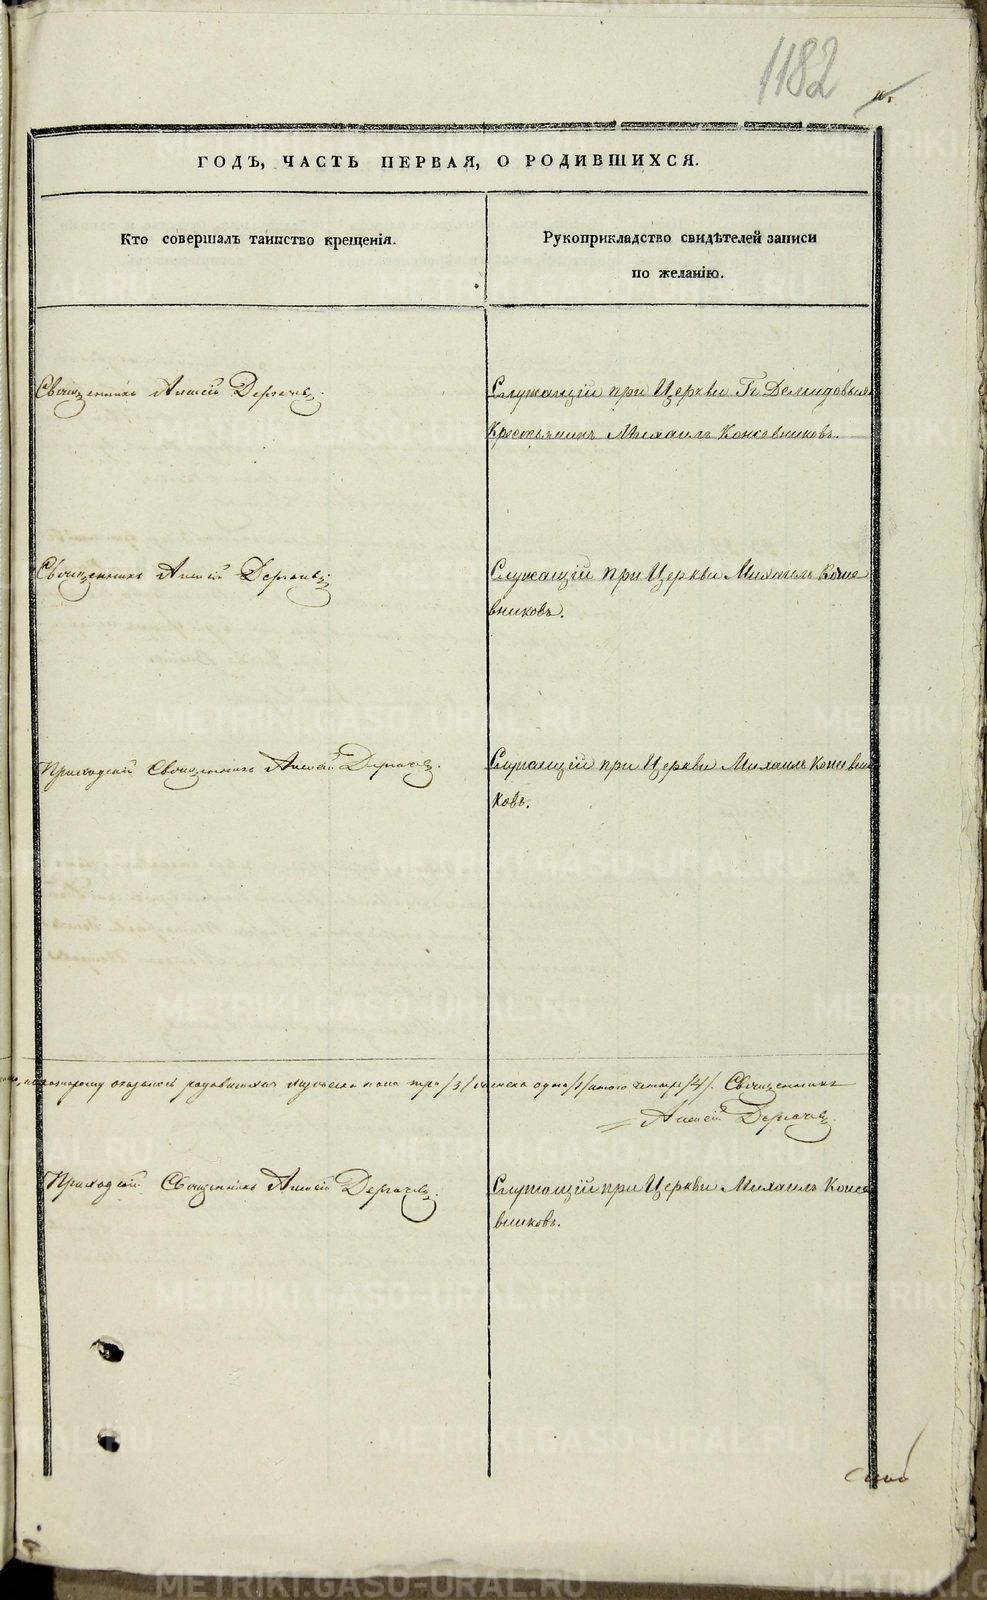 1182
ГОДЪ, ЧАСТЬ ПЕРВАЯ, О РОДИВШИХСЯ.
Кто совершалъ таинство крещенія.
Рукоприкладство свидѣтелей записи
по желанію.
Священникъ Алексій Дергачевъ.
Служащій при Церкви Гг Демидовыхъ
Крестьянинъ Михаилъ Кожевниковъ.
Священникъ Алексій Дергачевъ.
Служащій при Церкви Михаилъ Коже
вниковъ.
Приходскій Священникъ Алексій Дергачевъ.
Служащій при Церкви Михаилъ Кожевни
ковъ.
по которому оказалось родившихся мужеска пола три /3/ женска одна /1/ итого четыре /4/. Священникъ
Алексій Дергачевъ
Приходскій Священникъ Алексій Дергачевъ.
Служащій при Церкви Михаилъ Коже
вниковъ.
METRIKI.GASO-URAL.RU